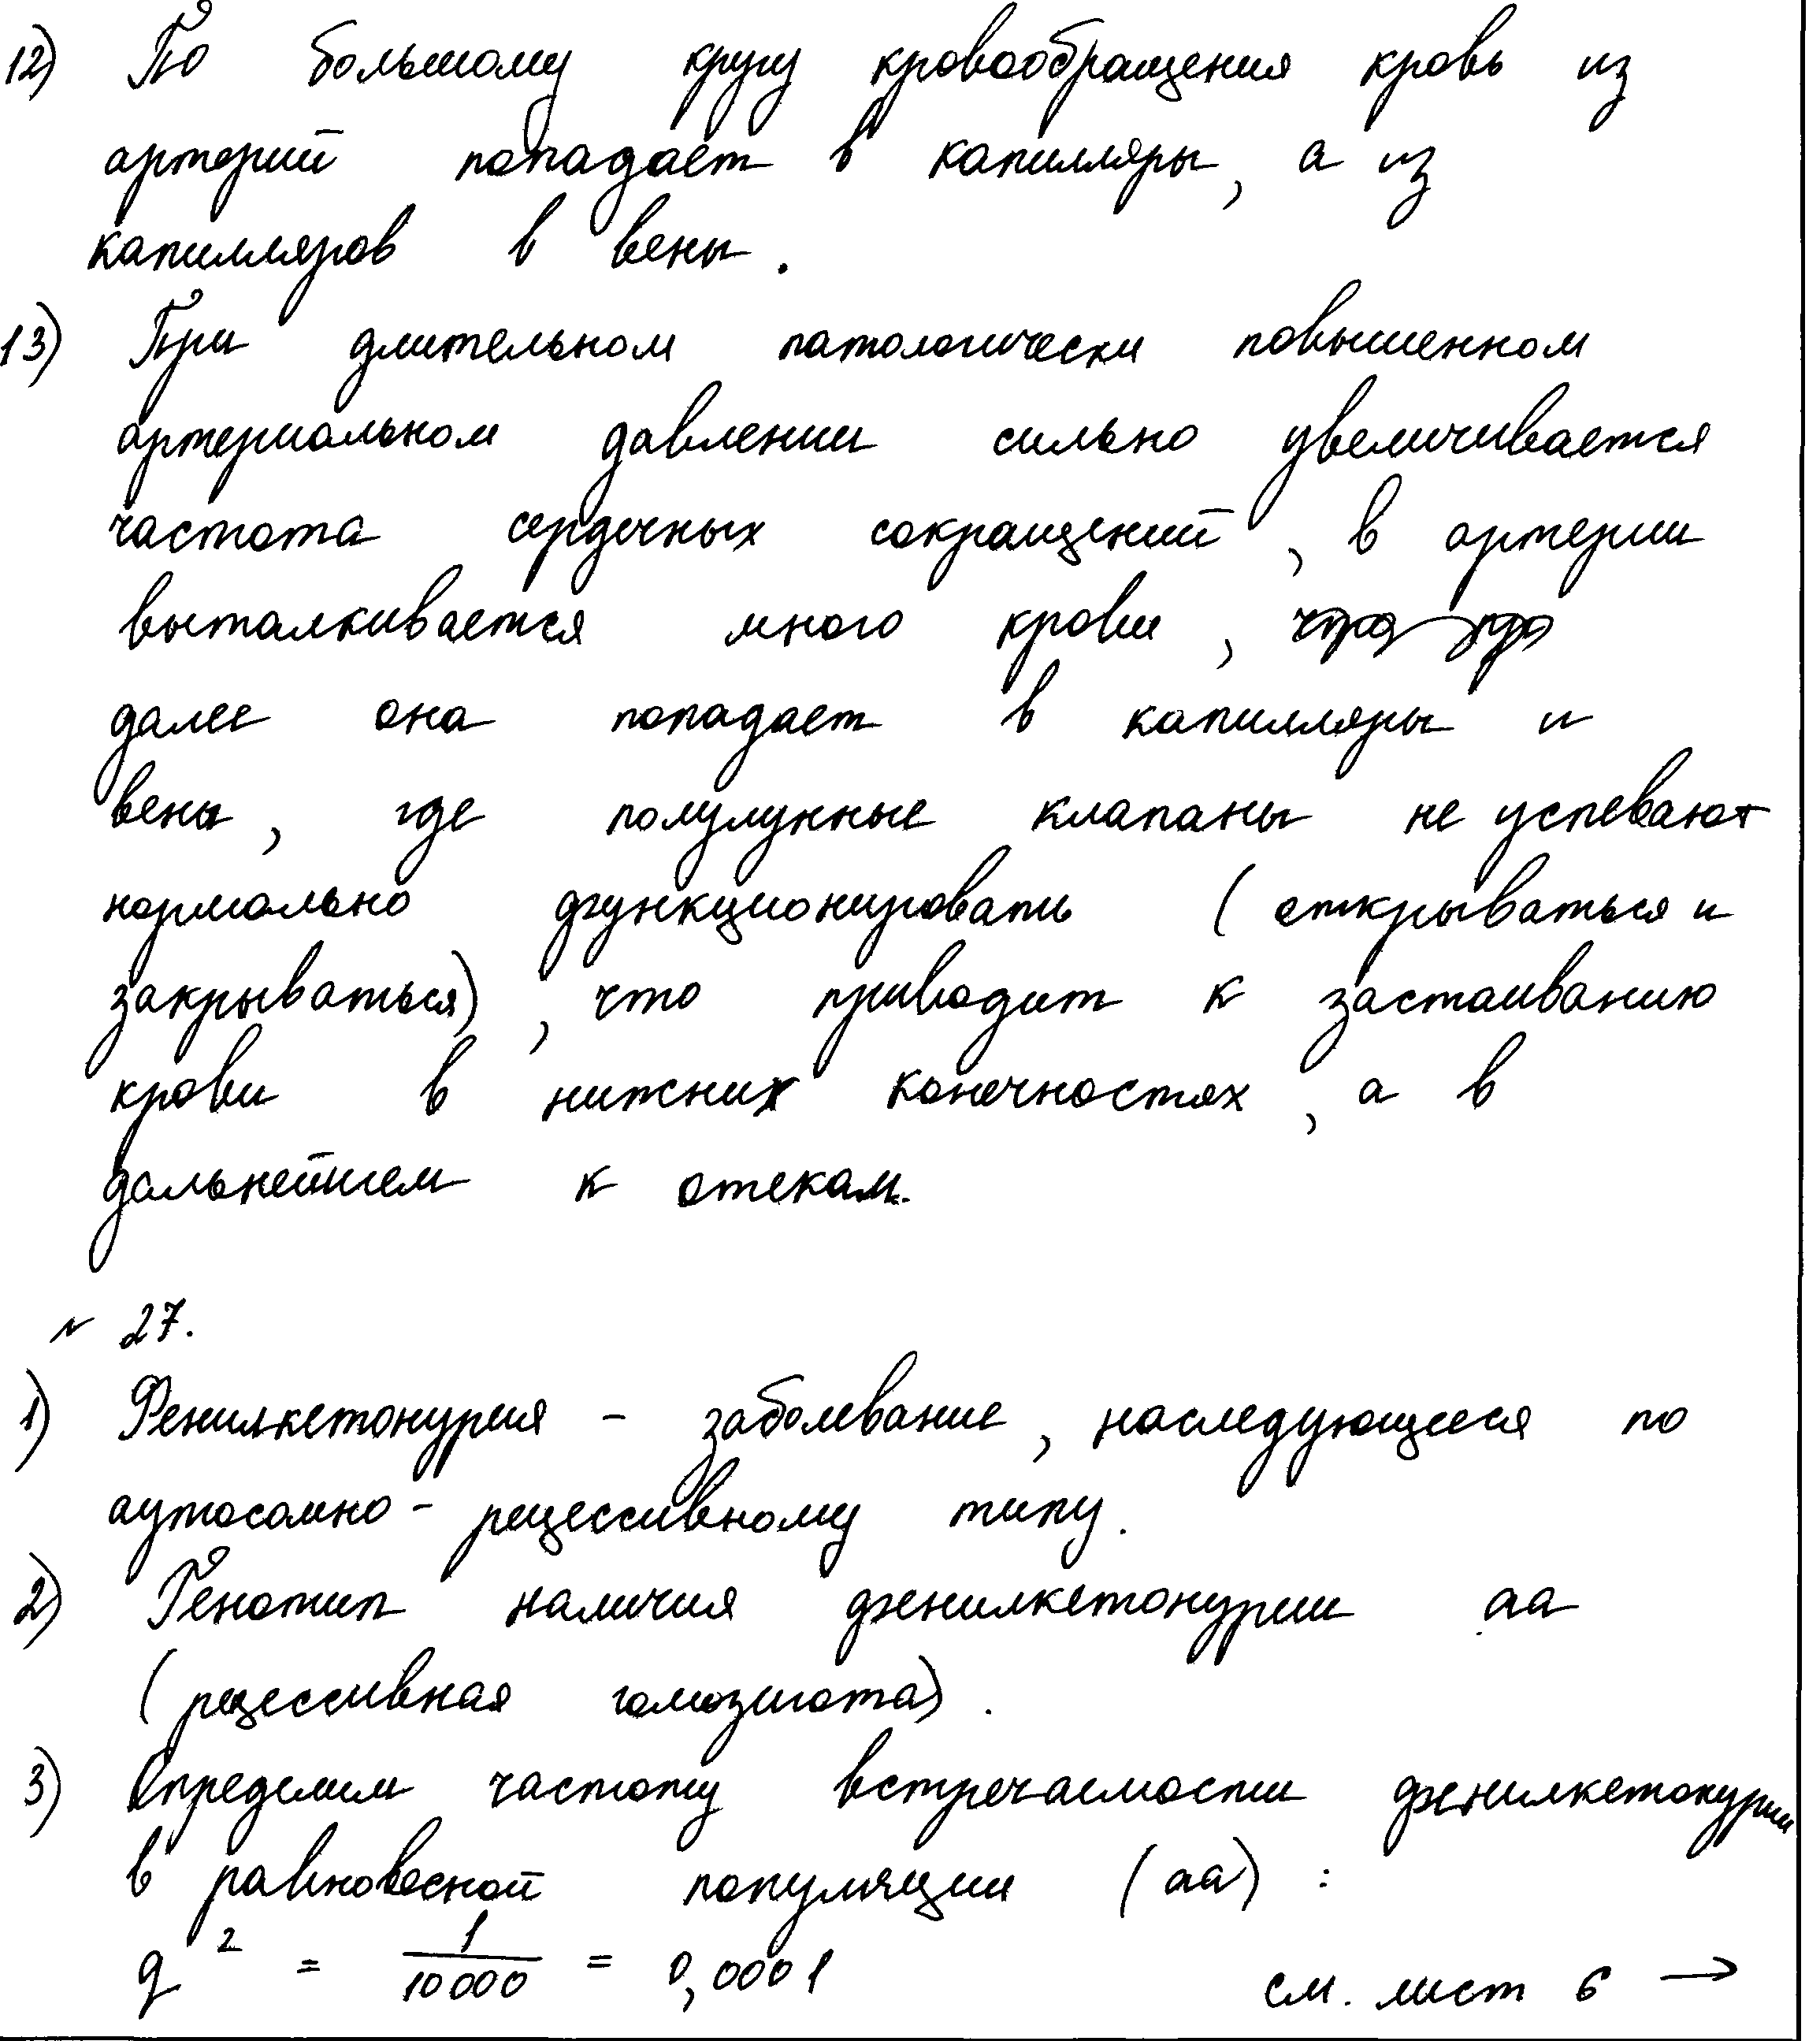 12) По большому кругу кровообращения кровь из
артерий попадает в капилляры, а из
капилляров в вены.
13) При длительном патологически повышенном
артериальном давлении сильно увеличивается
частота сердечных сокращений, в артерии
выталкивается много крови,
далее она попадает в капилляры и
вены, где полулунные клапаны не успевают
нормально функционировать (открываться и
закрываться), что приводит к застаиванию
крови в нижних конечностях, а в
дальнейшем к отекам.
№ 27.
1) Фенилкетонурия - заболевание, наследующееся по
аутосомно-рецессивному типу.
2) Генотип наличия фенилкетонурии аа
(рецессивная гомозигота).
3) Определим частоту встречаемости фенилкетонурии
в равновесной популяции (аа) :
q² = 1/10000 = 0,0001 см. лист 6 →